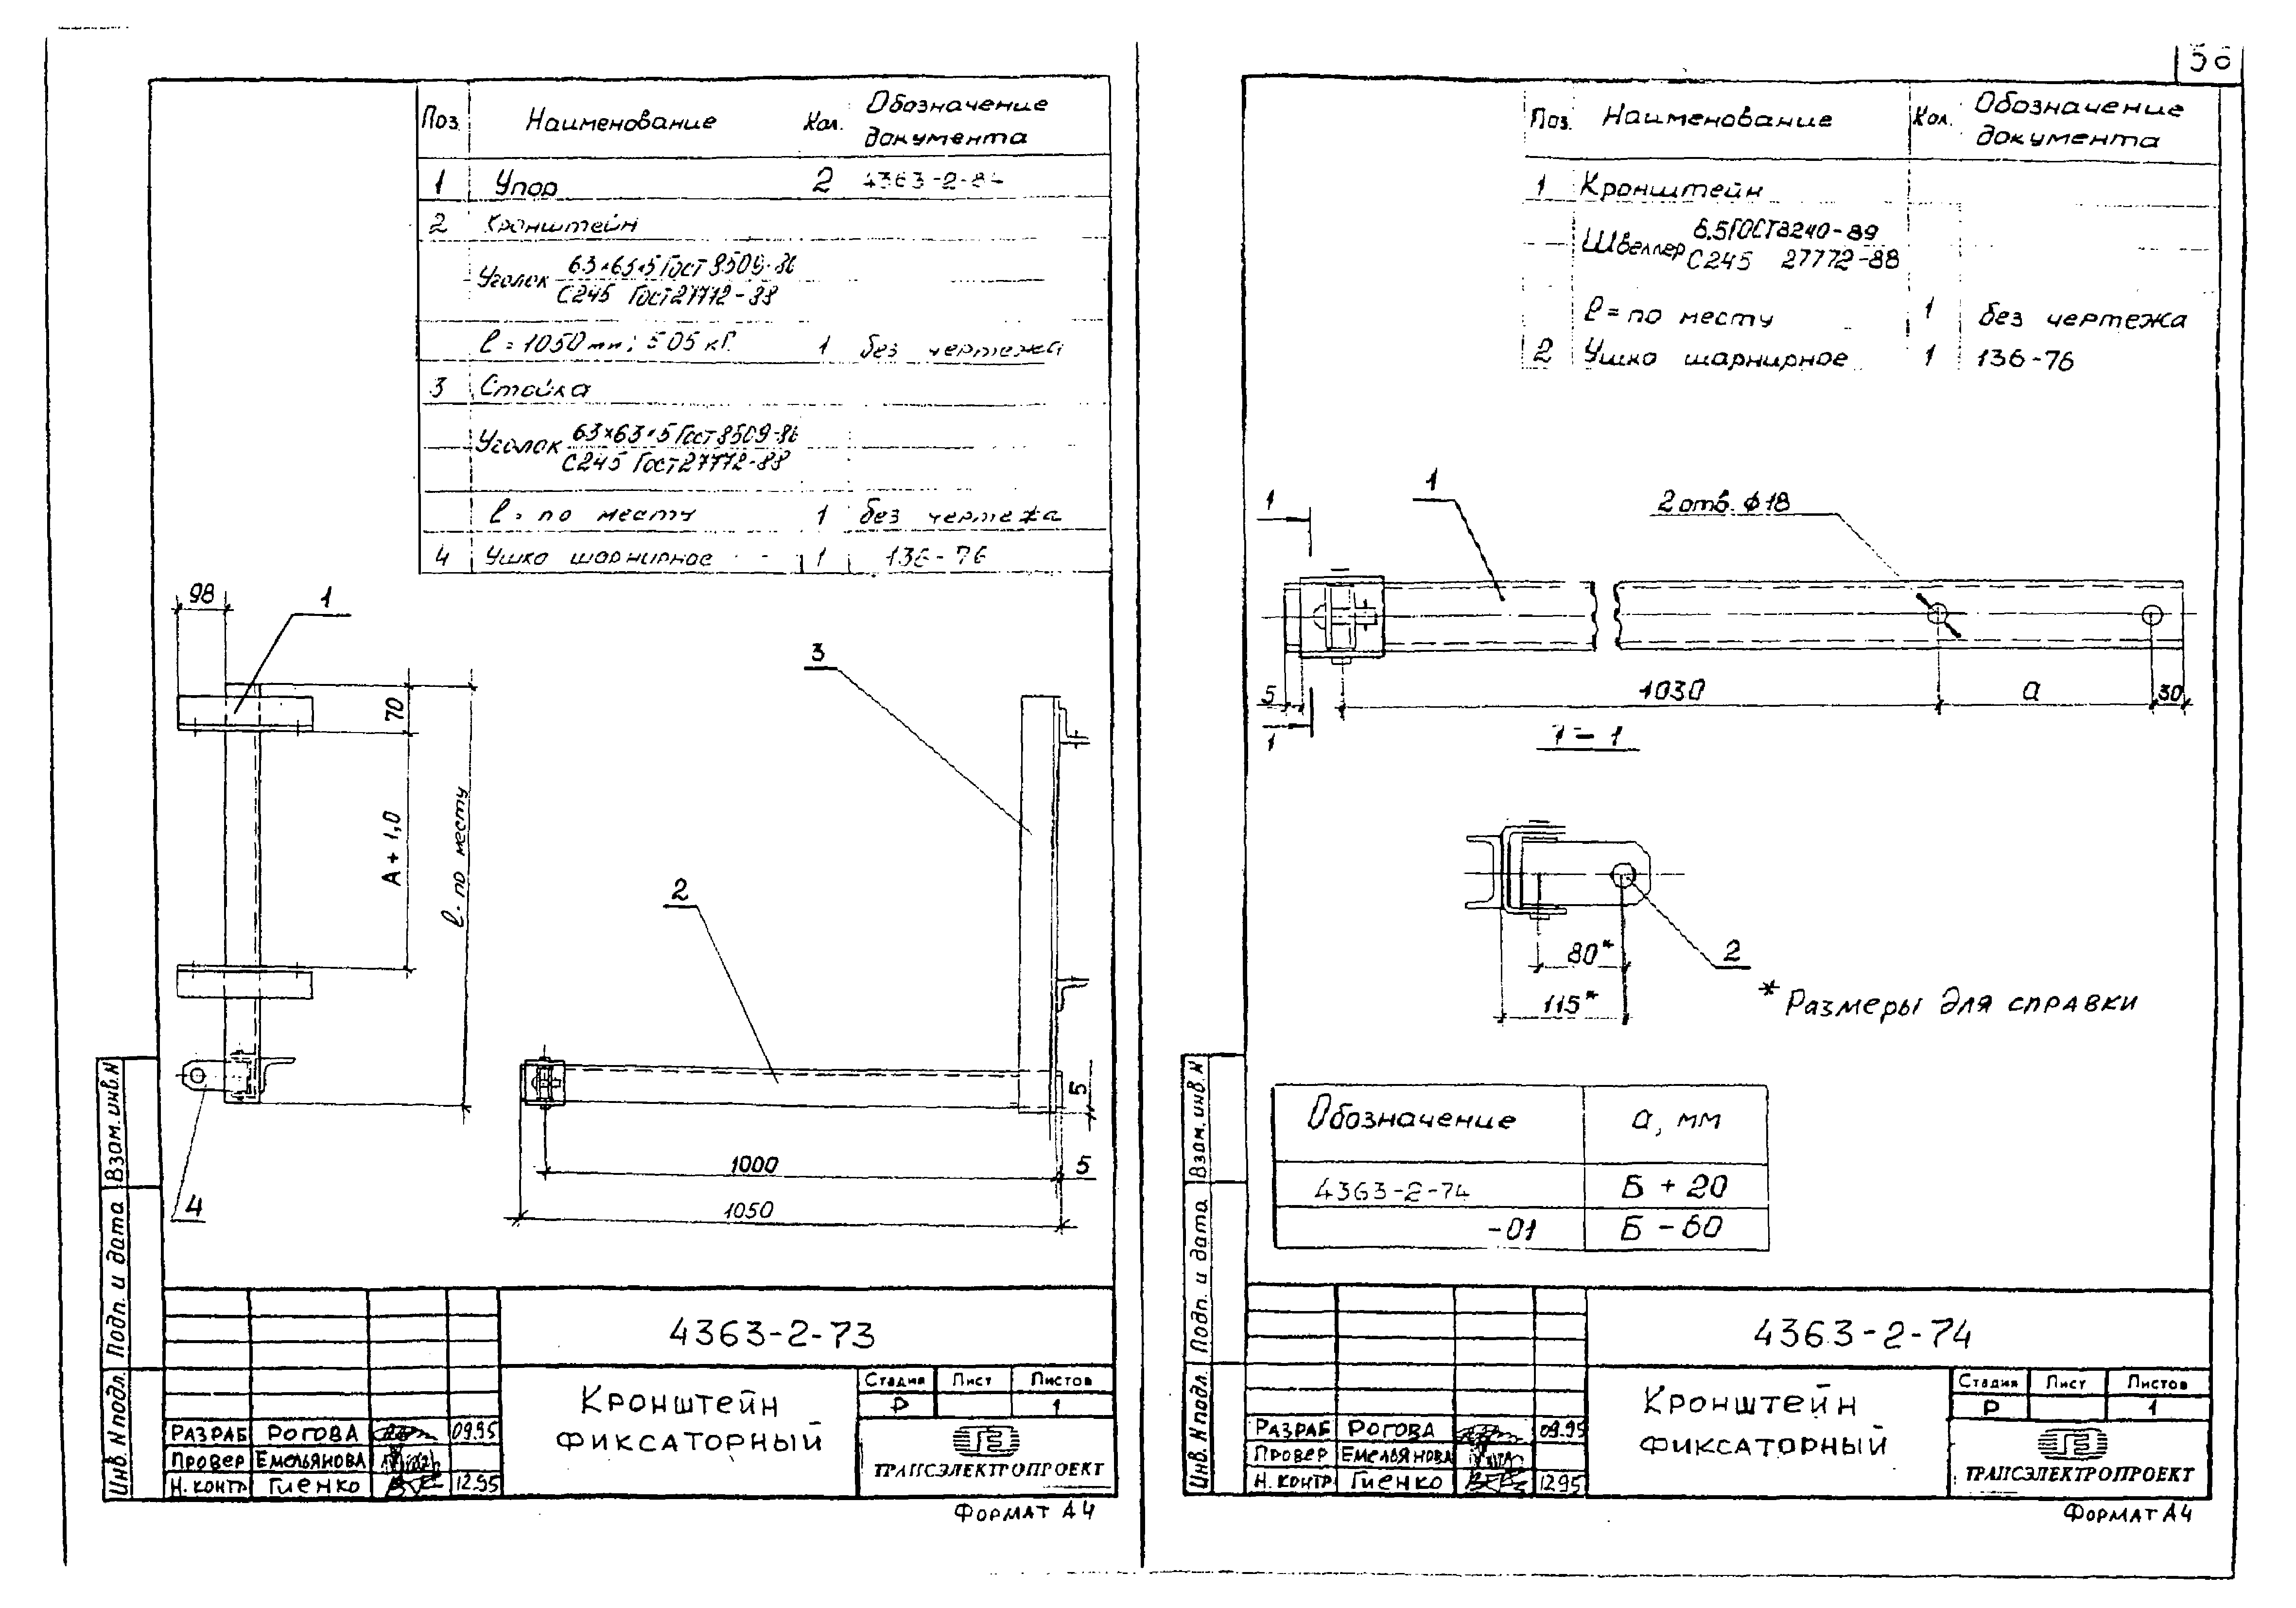 56
Поз. Наименование Кол. Обозначение документа
1 Упор 2 4363-2-84
2 Кронштейн
Уголок 63×63×5 Гост 8509-86
С245 Гост 27772-88
ℓ=1050 мм; 5.05 кг. 1 без чертежа
3 Стойка
Уголок 63×63×5 Гост 8509-86
С245 Гост 27772-88
ℓ - по месту 1 без чертежа
4 Ушко шарнирное 1 136-76
98
1
70
А + 1,0
ℓ - по месту
4
3
2
5
1000
5
1050
4363-2-73
Кронштейн
фиксаторный
Стадия Лист Листов
Р 1
ТРАНСЭЛЕКТРОПРОЕКТ
Разраб Рогова 09.95
Провер Емельянова
Н. контр Гиенко 12.95
Взам. инв. N
Подп. и дата
Инв. N подл.
Формат А4
Поз. Наименование Кол. Обозначение документа
1 Кронштейн
Швеллер 6,5 ГОСТ 8240-89
С245 27772-88
ℓ = по месту 1 без чертежа
2 Ушко шарнирное 1 136-76
1
1
2 отв. ф 18
5
1030
а
30
1
1 - 1
80*
2
115*
* Размеры для справки
Обозначение а, мм
4363-2-74 Б + 20
-01 Б - 60
4363-2-74
Кронштейн
фиксаторный
Стадия Лист Листов
Р 1
ТРАНСЭЛЕКТРОПРОЕКТ
Разраб Рогова 09.95
Провер Емельянова
Н. контр Гиенко 12.95
Взам. инв. N
Подп. и дата
Инв. N подл.
Формат А4